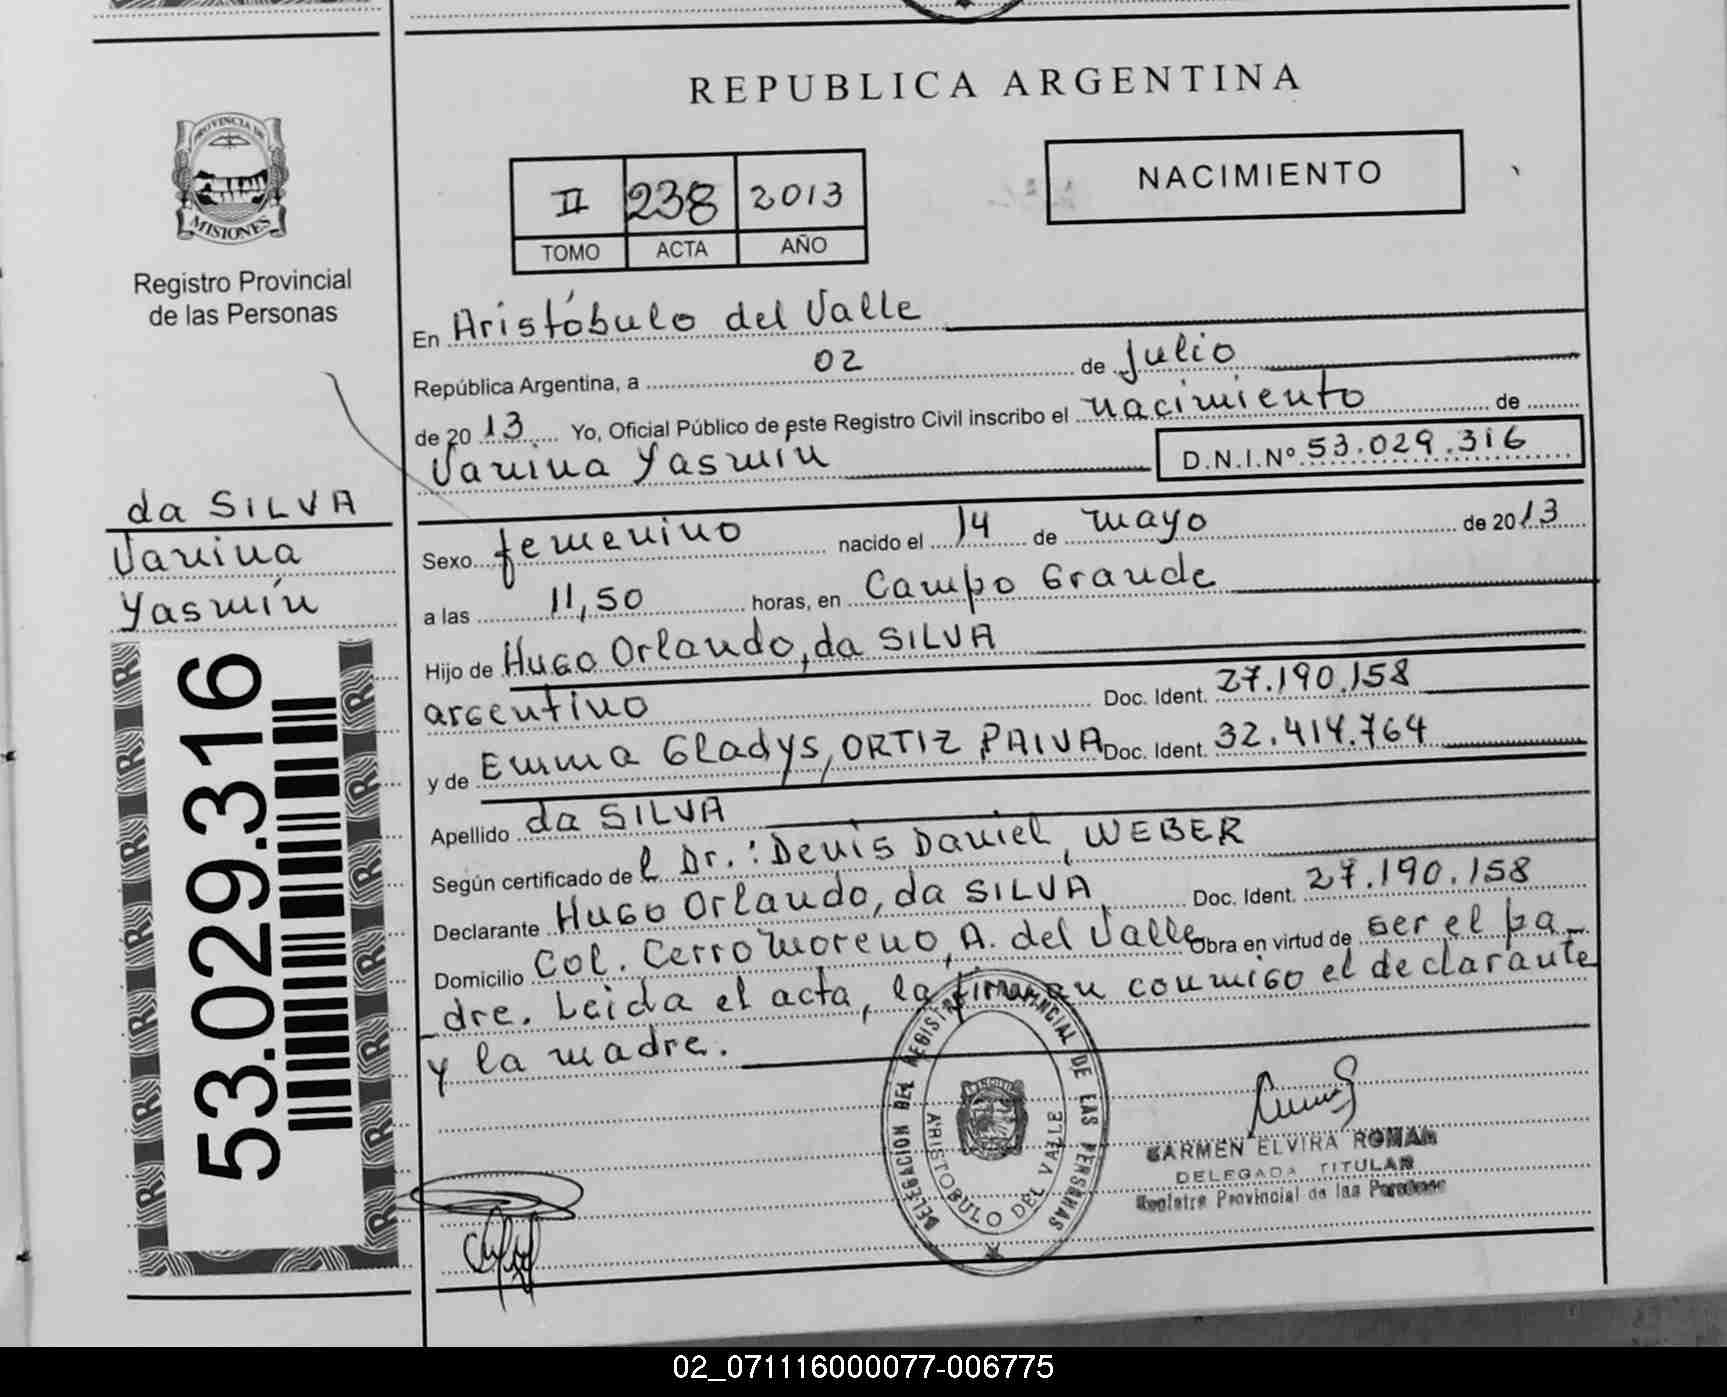 REPUBLICA ARGENTINA
PROVINCIA DE
MISIONES
Registro Provincial
de las Personas
II 238 2013
TOMO ACTA AÑO
NACIMIENTO
En Aristóbulo del Valle
República Argentina, a 02 de Julio
de 20 13 Yo, Oficial Público de este Registro Civil inscribo el nacimiento de
Vanina Yasmín D.N.I.Nº 53.029.316
da SILVA
Vanina
Yasmín
53.029.316
Sexo femenino nacido el 14 de mayo de 20 13
a las 11,50 horas, en Campo Grande
Hijo de Hugo Orlando, da SILVA
argentino Doc. Ident. 27.190.158
y de Emma Gladys, ORTIZ PAIVA Doc. Ident. 32.414.764
Apellido da SILVA
Según certificado de l Dr.: Denis Daniel, WEBER
Declarante Hugo Orlando, da SILVA Doc. Ident. 27.190.158
Domicilio Col. Cerro Moreno, A. del Valle Obra en virtud de ser el pa_
dre. Leida el acta, la firman conmigo el declarante
y la madre.
DELEGACION DEL REGISTRO PROVINCIAL DE LAS PERSONAS
ARISTOBULO DEL VALLE
CARMEN ELVIRA ROMAN
DELEGADA TITULAR
Registro Provincial de las Personas
02_071116000077-006775